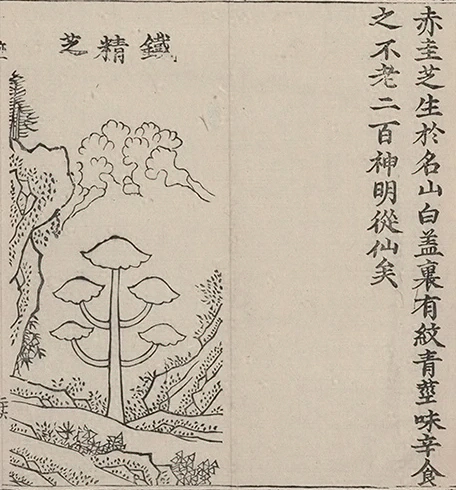 赤主芝生於名山白盖裏有紋青莖味辛食
之不老二百神明從仙矣
鐵精芝